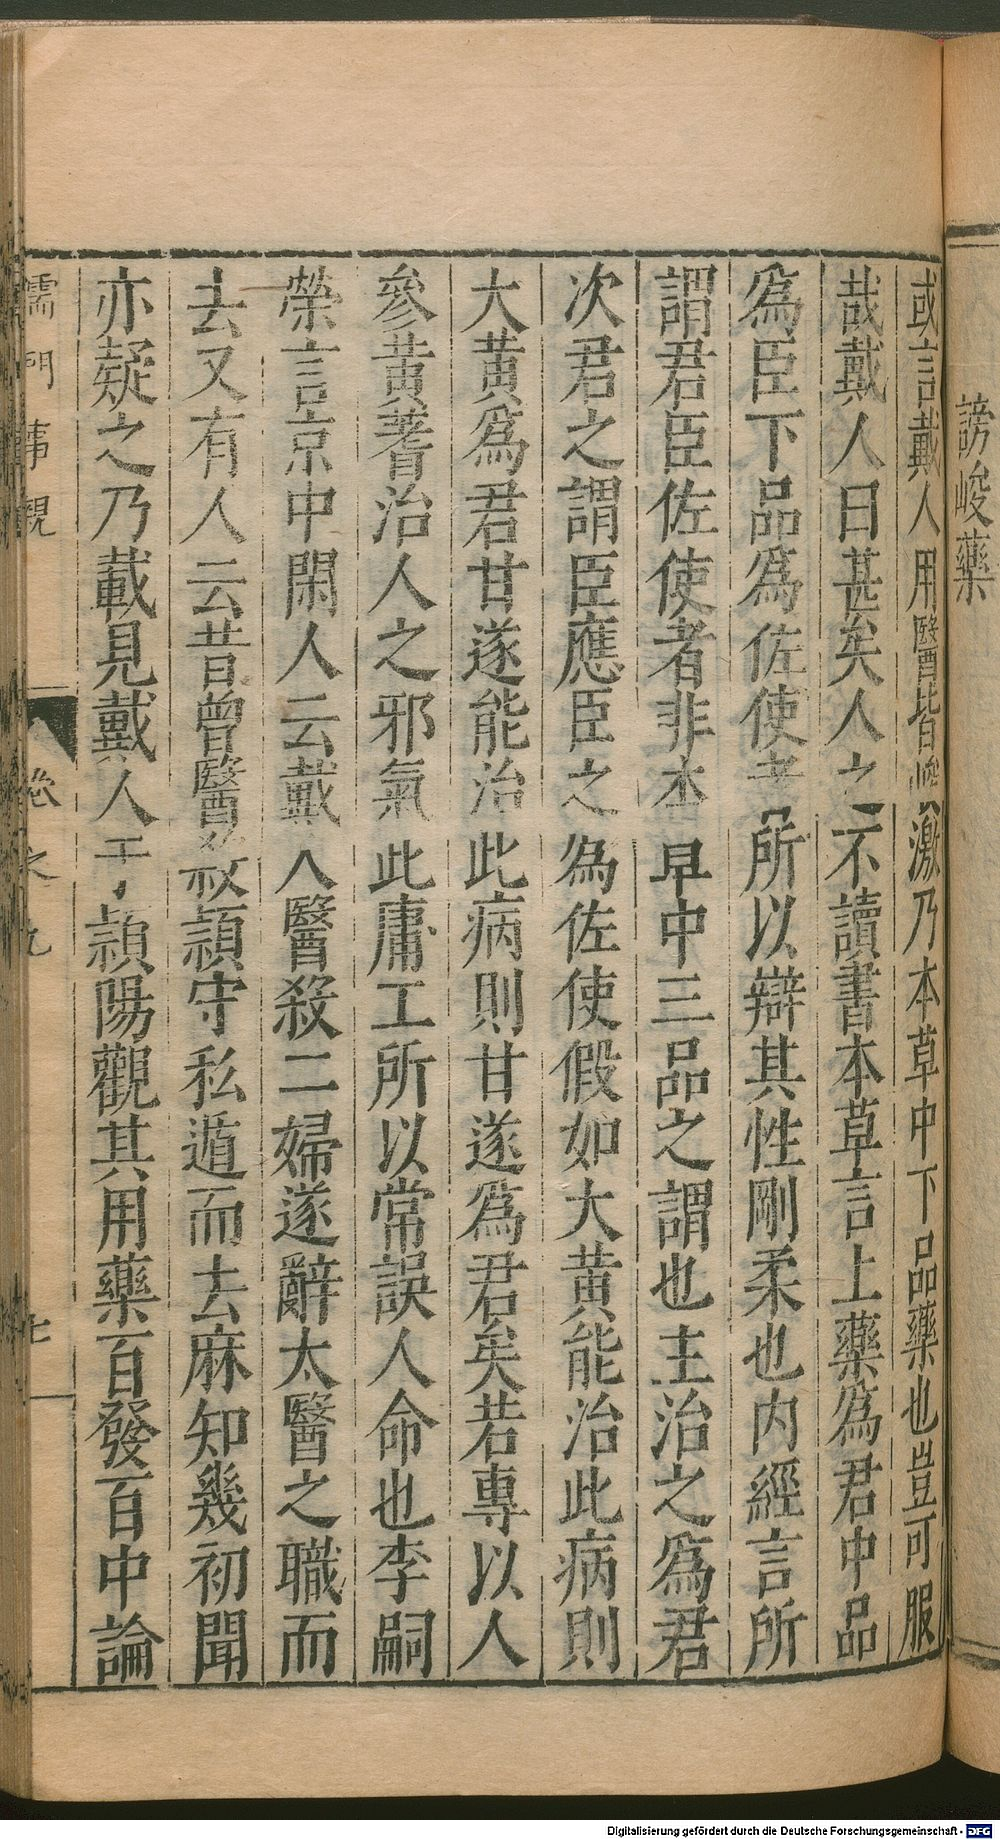 謗峻藥
或言戴人用醫皆峻激乃本草中下品藥也豈可服
哉戴人曰甚矣人之不讀書本草言上藥為君中品
為臣下品為佐使者所以辯其性剛柔也內經言所
謂君臣佐使者非本草中三品之謂也主治之為君
次君之謂臣應臣之為佐使假如大黄能治此病則
大黄為君甘遂能治此病則甘遂為君矣若專以人
參黄蓍治人之邪氣此庸工所以常誤人命也李嗣
榮言京中閑人云戴人醫殺二婦遂辭太醫之職而
去又有人云昔曾醫殺潁守私遁而去麻知幾初聞
亦疑之乃載見戴人于潁陽觀其用藥百發百中論
儒門事親 卷之九 七
Digitalisierung gefördert durch die Deutsche Forschungsgemeinschaft - DFG